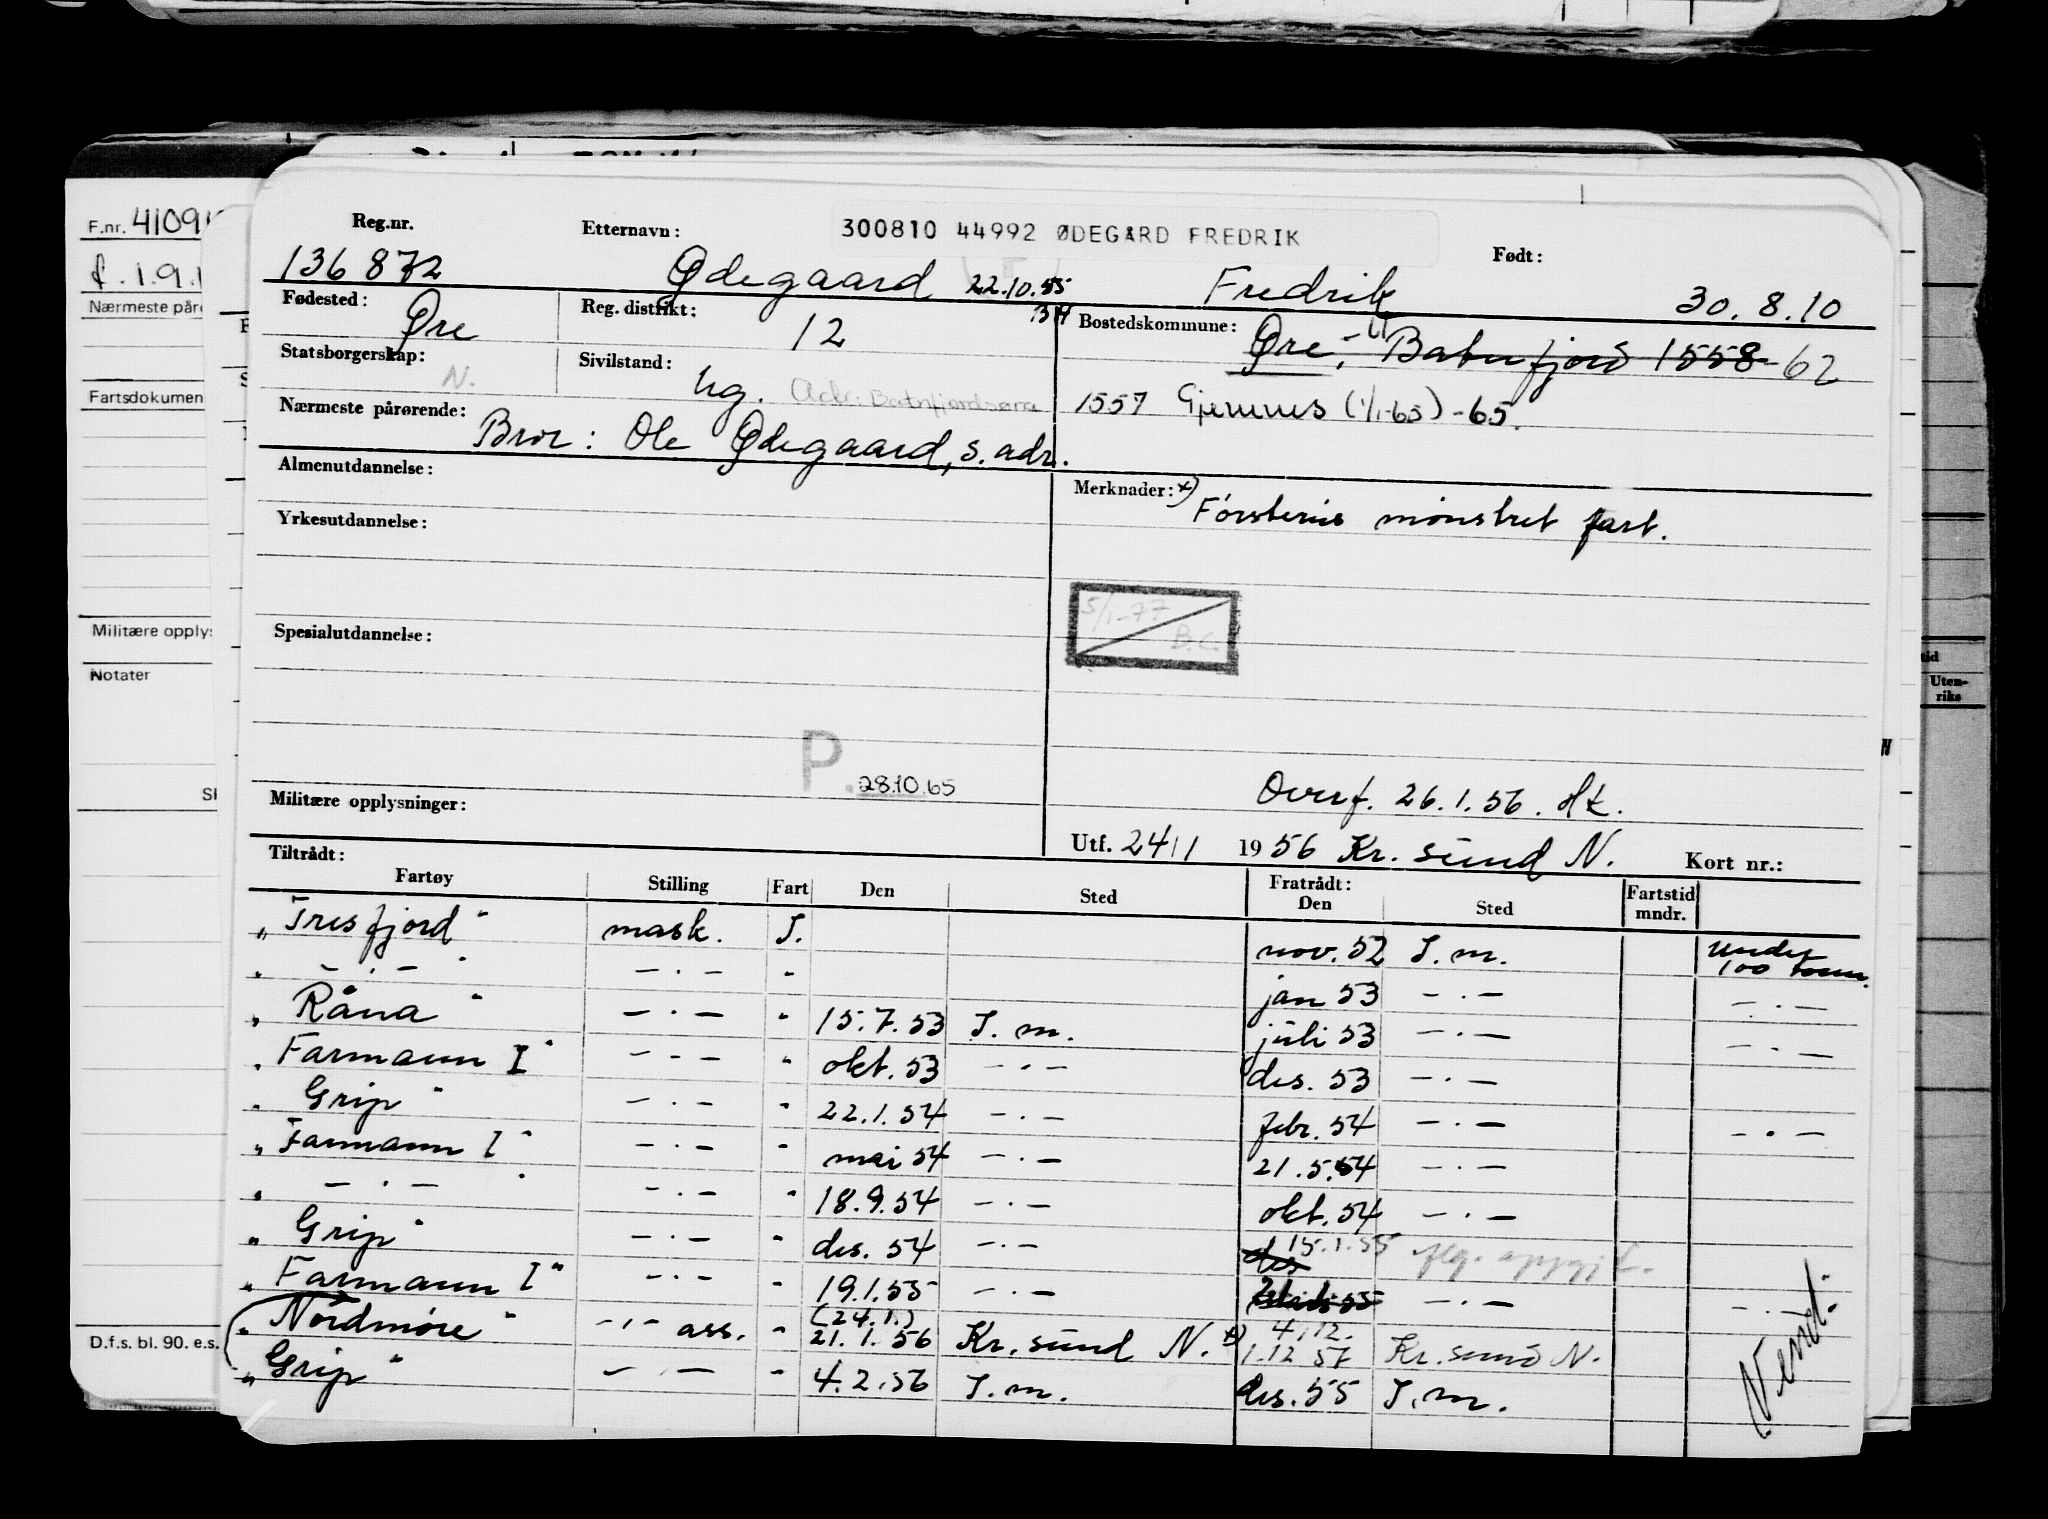 F.nr. 41091
f. 1.9.1
Nærmeste påre
Fartsdokumen
Militære opplys
Notater
D.f.s. bl. 90. e.s.
Uten-
riks
Reg.nr. Etternavn: 300810 44992 ØDEGÅRD FREDRIK Født:
136 872 Ødegaard 22.10.55 Fredrik 30.8.10
Fødested: Øre Reg. distrikt: 12 Bostedskommune: Øre, Batnfjord 1558-62
Statsborgerskap: N. Sivilstand: ug. Adr. Batnfjordsøra 1557 Gjemnes (1/1-65) -65.
Nærmeste pårørende: Bror: Ole Ødegaard, s. adr.
Almenutdannelse: Merknader: x) Førsteris mønstret fart.
Yrkesutdannelse:
5/1-77
B.C.
Spesialutdannelse:
P. 28.10.65
Militære opplysninger: Overf. 26.1.56.
Utf. 24/1 1956 Kr. sund N. Kort nr.:
Tiltrådt: Fratrådt:
Fartøy Stilling Fart Den Sted Den Sted Fartstid mndr.
"Tresfjord" mask. I. nov. 52 I. m. under 100 tonn.
" — . — " — . — " jan 53 — . — — . —
"Råna" — . — " 15.7.53 I. m. juli 53 — . — — . —
"Farmann I" — . — " okt. 53 — . — des. 53 — . —
"Grip" — . — " 22.1.54 — . — febr. 54 — . — — . —
"Farmann I" — . — " mai 54 — . — 21.5.54 — . —
" — . — " — . — " 18.9.54 — . — okt. 54 — . —
"Grip" — . — " des. 54 — . — des 15.1.55 oppgitt.
"Farmann I" — . — " 19.1.55 — . — — . — — . —
"Nordmøre" — . — ass. " (24.1.) 21.1.56 Kr. sund N. x) 4.12. 1.12 57 Kr. sund N.
"Grip" — . — " 4.2.56 I. m. des. 55 I. m.
Vend.